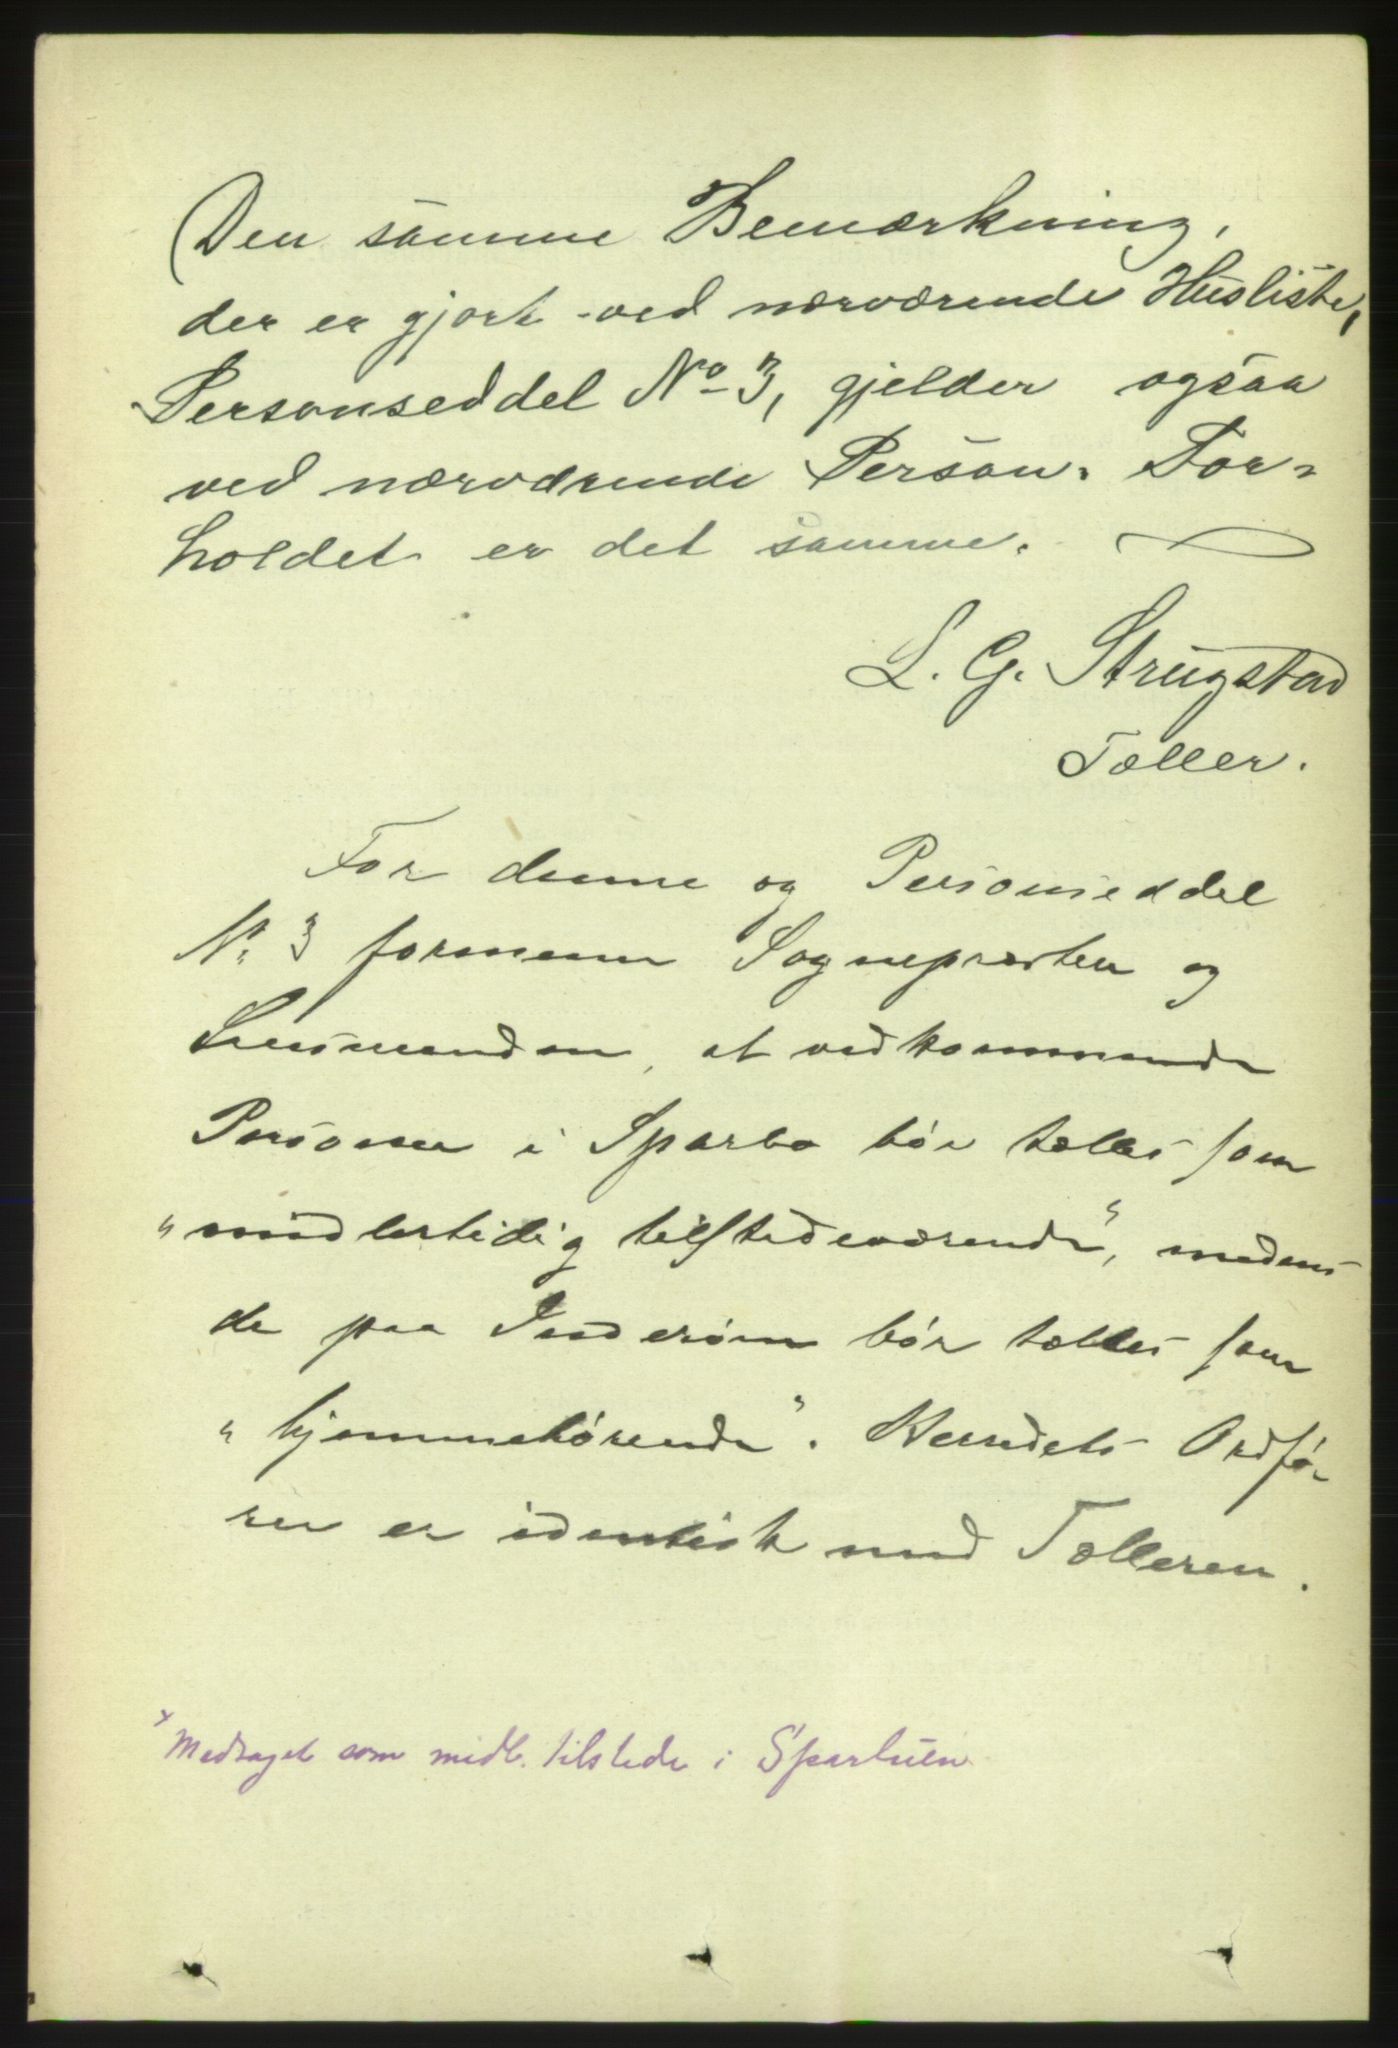 Den samme Bemærkning,
der er gjort ved nærværende Husliste,
Personseddel No 3, gjelder ogsaa
ved nærværende Person. For-
holdet er det samme.
L. G. Strugstad
Tæller.
For denne og Personseddel
No 3 formener Sognepresten og
Lensmanden, at vedkommende
Personer i Sparbo bör tælles som
"midlertidig tilstedeværende", medens
de paa Inderøen bör tælles som
"hjemmehörende". Herredets Ordfö-
rer er identisk med Tælleren.
x Medtaget som midl. tilstede i Sparbuen